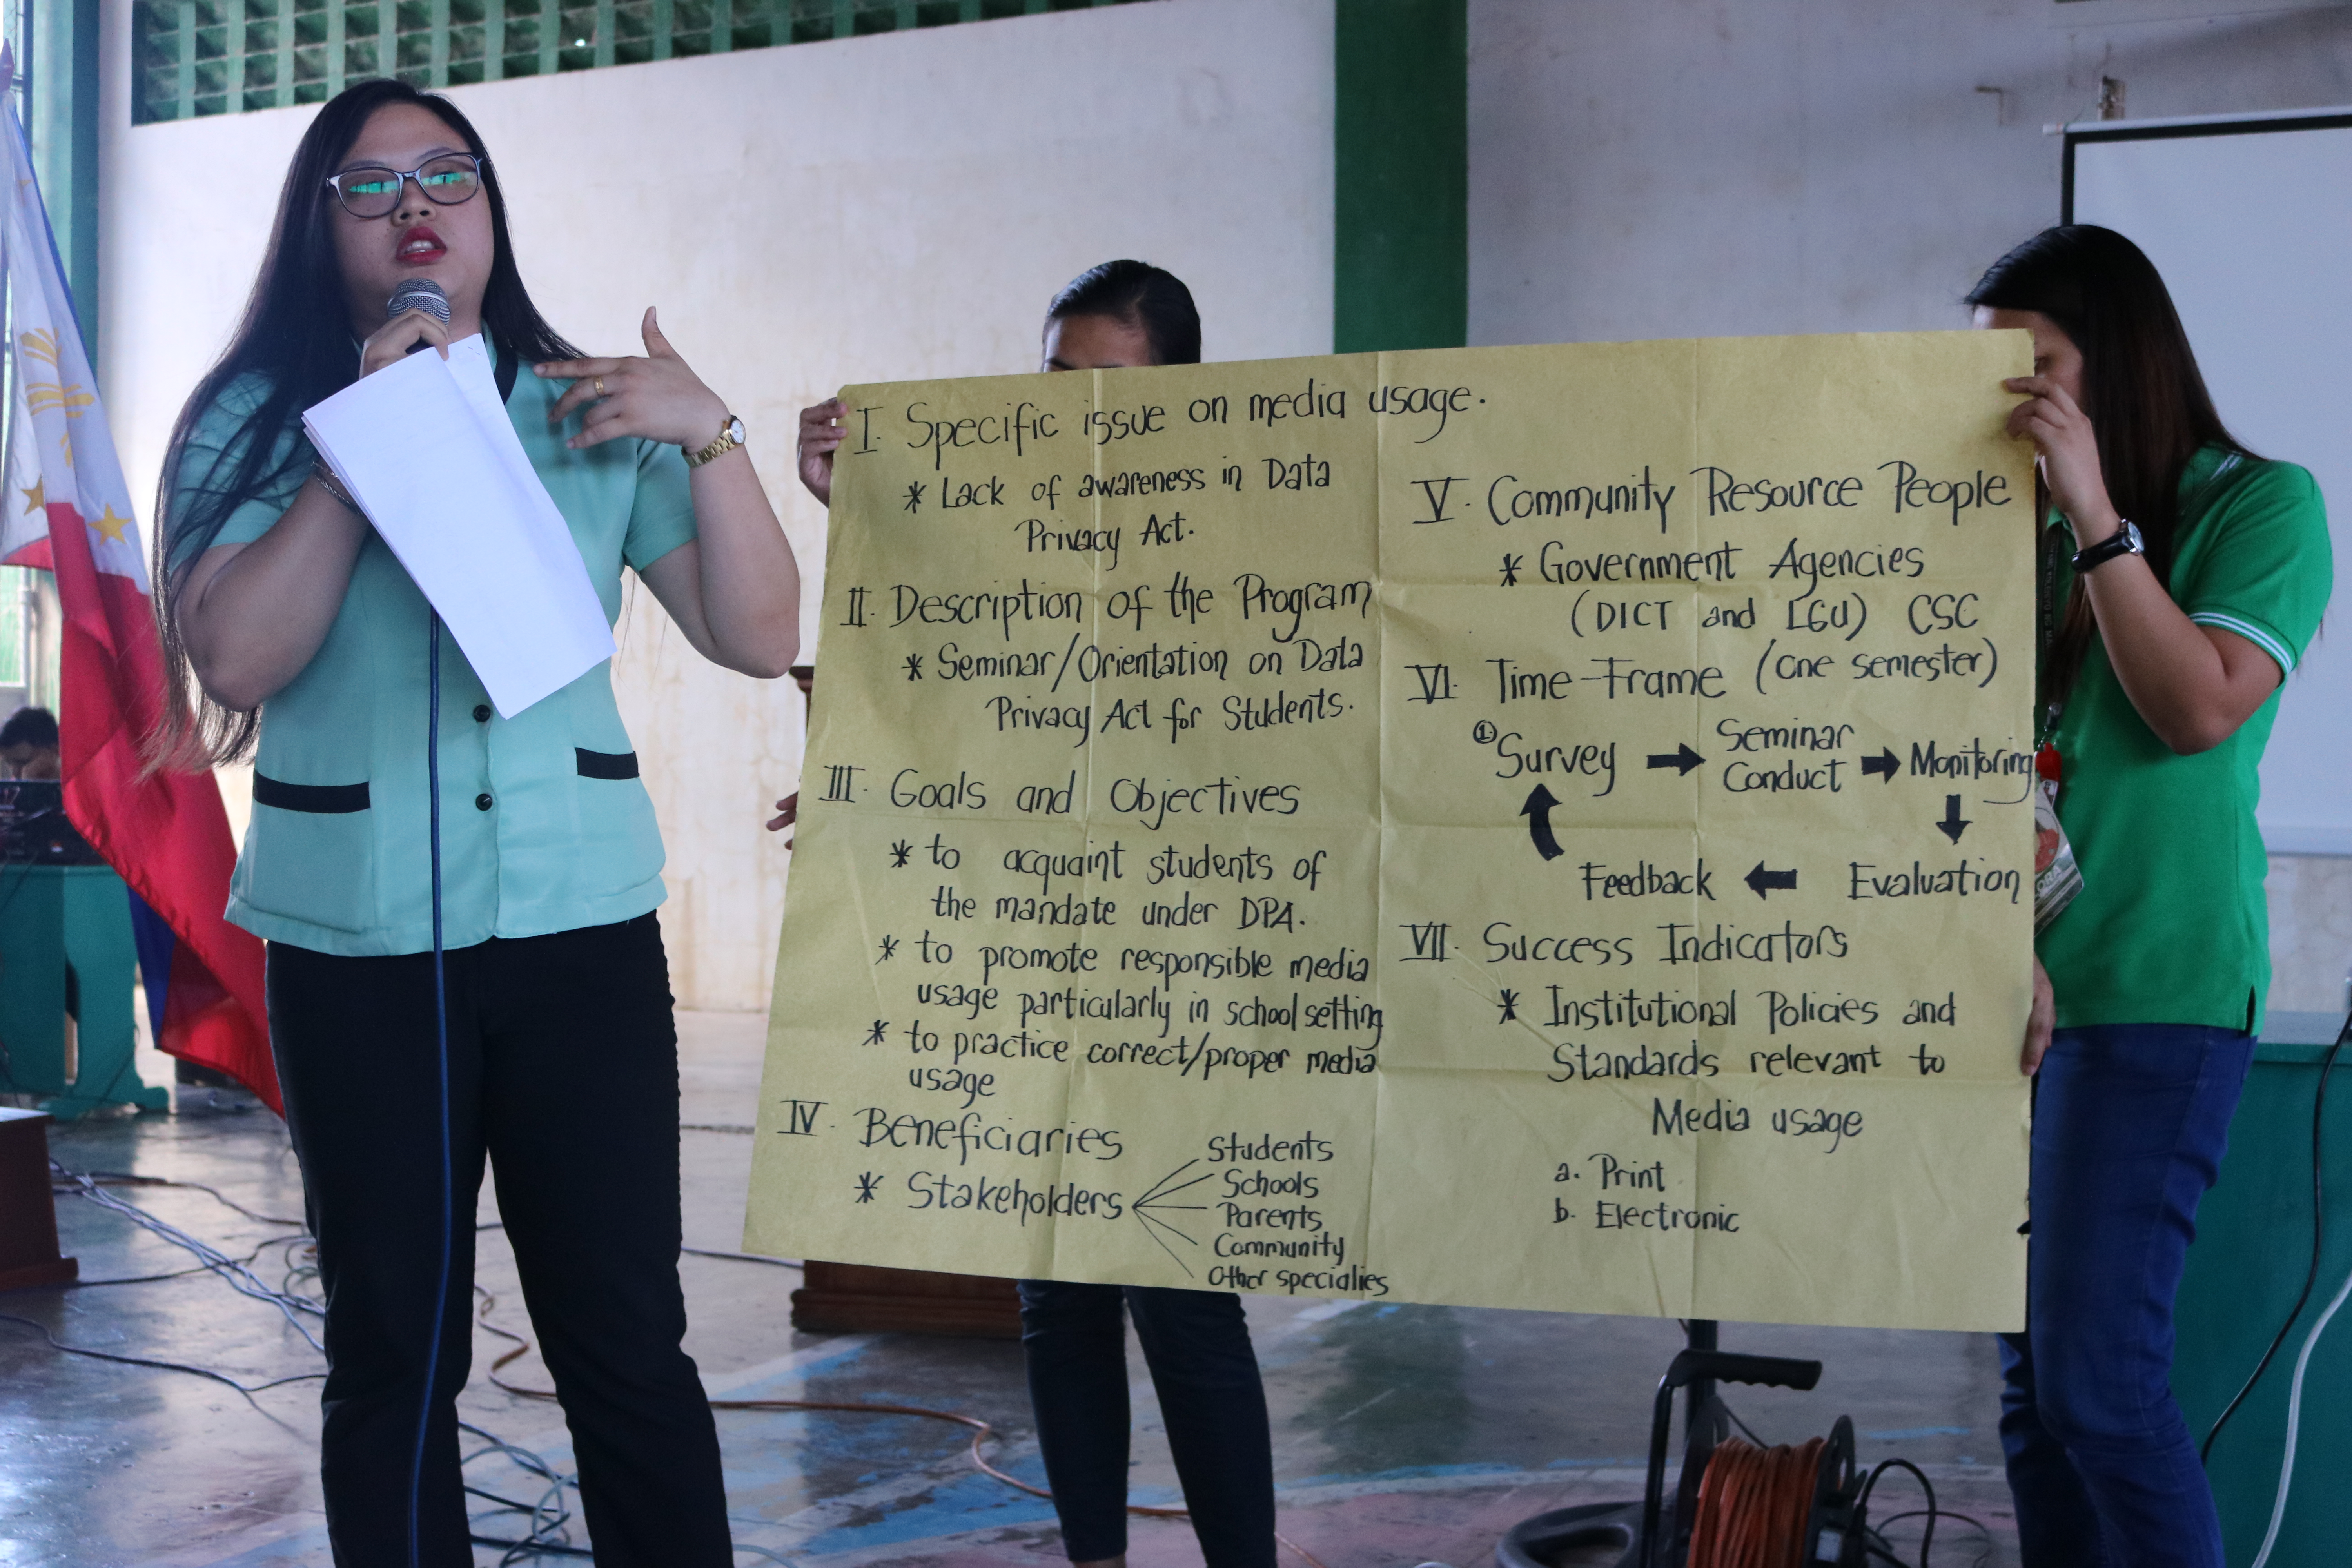 I. Specific issue on media usage.
* Lack of awareness in Data
Privacy Act.
II. Description of the Program
* Seminar/Orientation on Data
Privacy Act for Students.
III. Goals and Objectives
* to acquaint students of
the mandate under DPA.
* to promote responsible media
usage particularly in school setting
* to practice correct/proper media
usage
IV. Beneficiaries
* Stakeholders
Students
Schools
Parents
Community
Other specialies
V. Community Resource People
* Government Agencies
(DICT and LGU) CSC
VI. Time-Frame (one semester)
① Survey → Seminar Conduct → Monitoring
Feedback ← Evaluation
VII. Success Indicators
* Institutional Policies and
Standards relevant to
Media usage
a. Print
b. Electronic